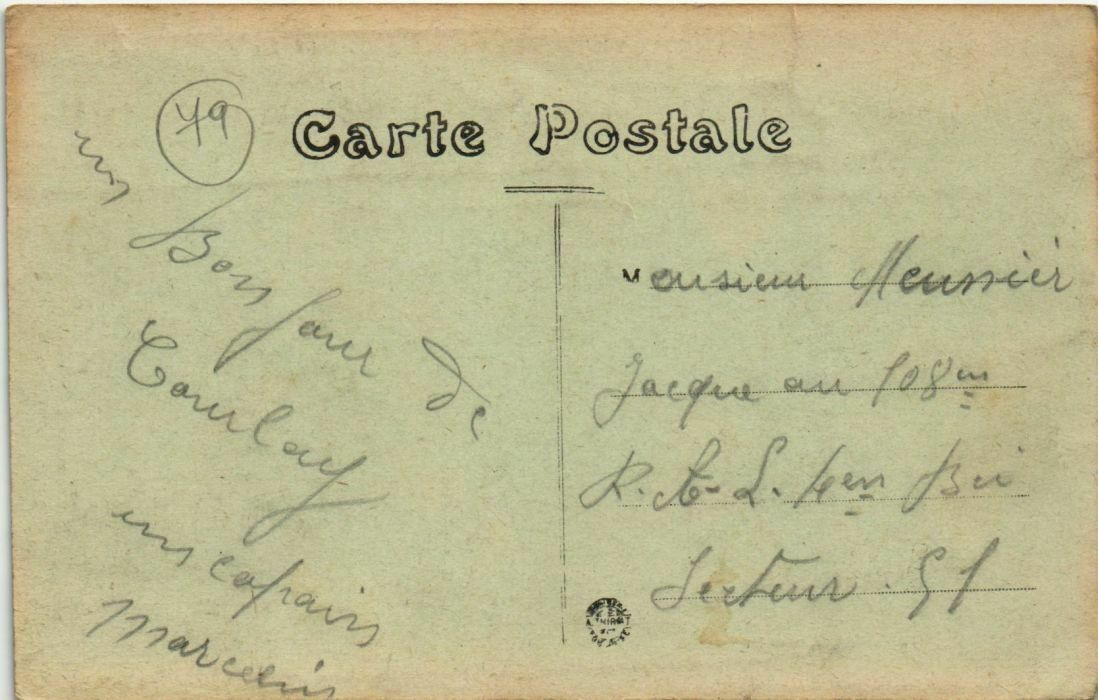 79
Carte Postale
un
Bonjour de
Coulay
un copain
Marcelin
Monsieur Meunier
Jacque au 108em
R. A. L. 4em Bie
Secteur. 51